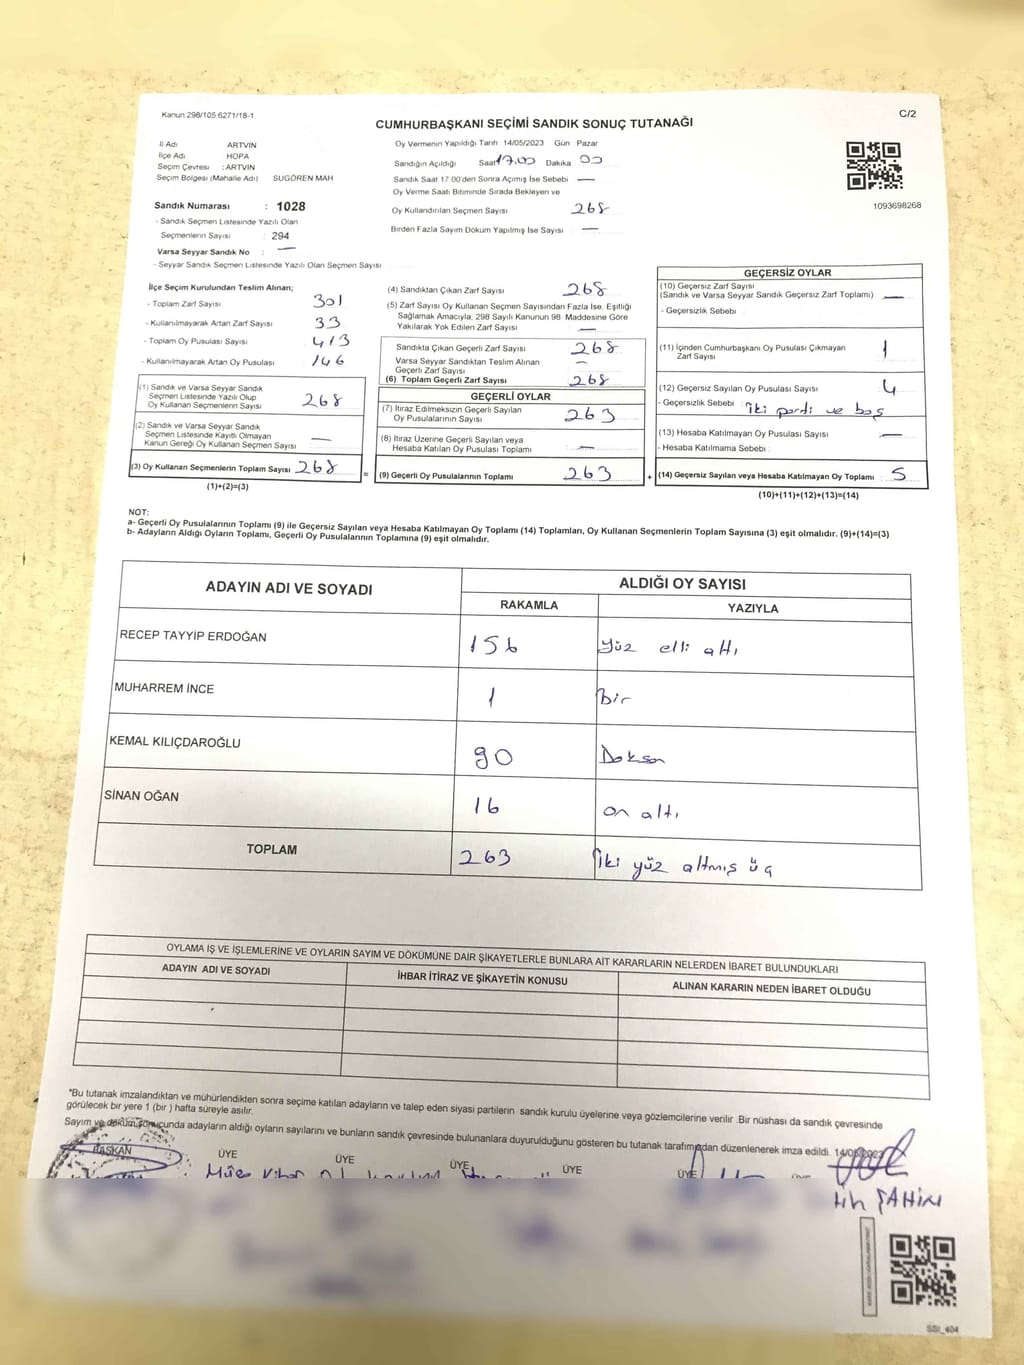 Kanun.298/105.6271/18-1
C/2
CUMHURBAŞKANI SEÇİMİ SANDIK SONUÇ TUTANAĞI
İl Adı ARTVIN
İlçe Adı HOPA
Seçim Çevresi : ARTVIN
Seçim Bölgesi (Mahalle Adı) SUGÖREN MAH
Sandık Numarası : 1028
- Sandık Seçmen Listesinde Yazılı Olan
Seçmenlerin Sayısı : 294
Varsa Seyyar Sandık No : —
- Seyyar Sandık Seçmen Listesinde Yazılı Olan Seçmen Sayısı
Oy Vermenin Yapıldığı Tarih 14/05/2023 Gün Pazar
Sandığın Açıldığı Saat 17.00 Dakika 00
Sandık Saat 17 00'den Sonra Açmış İse Sebebi —
Oy Verme Saati Bitiminde Sırada Bekleyen ve
Oy Kullandırılan Seçmen Sayısı 268
Birden Fazla Sayım Döküm Yapılmış İse Sayısı —
1093698268
İlçe Seçim Kurulundan Teslim Alınan;
- Toplam Zarf Sayısı 301
- Kullanılmayarak Artan Zarf Sayısı 33
- Toplam Oy Pusulası Sayısı 413
- Kullanılmayarak Artan Oy Pusulası 146
(1) Sandık ve Varsa Seyyar Sandık
Seçmen Listesinde Yazılı Olup
Oy Kullanan Seçmenlerin Sayısı 268
(2) Sandık ve Varsa Seyyar Sandık
Seçmen Listesinde Kayıtlı Olmayan
Kanun Gereği Oy Kullanan Seçmen Sayısı —
(3) Oy Kullanan Seçmenlerin Toplam Sayısı 268 =
(1)+(2)=(3)
(4) Sandıktan Çıkan Zarf Sayısı 268
(5) Zarf Sayısı Oy Kullanan Seçmen Sayısından Fazla İse, Eşitliği
Sağlamak Amacıyla; 298 Sayılı Kanunun 98. Maddesine Göre
Yakılarak Yok Edilen Zarf Sayısı —
Sandıkta Çıkan Geçerli Zarf Sayısı 268
Varsa Seyyar Sandıktan Teslim Alınan
Geçerli Zarf Sayısı —
(6) Toplam Geçerli Zarf Sayısı 268
GEÇERLİ OYLAR
(7) İtiraz Edilmeksizin Geçerli Sayılan
Oy Pusulalarının Sayısı 263
(8) İtiraz Üzerine Geçerli Sayılan veya
Hesaba Katılan Oy Pusulası Toplamı —
(9) Geçerli Oy Pusulalarının Toplamı 263 +
GEÇERSİZ OYLAR
(10) Geçersiz Zarf Sayısı
(Sandık ve Varsa Seyyar Sandık Geçersiz Zarf Toplamı) —
- Geçersizlik Sebebi
(11) İçinden Cumhurbaşkanı Oy Pusulası Çıkmayan
Zarf Sayısı 1
(12) Geçersiz Sayılan Oy Pusulası Sayısı 4
- Geçersizlik Sebebi iki ve boş
(13) Hesaba Katılmayan Oy Pusulası Sayısı —
- Hesaba Katılmama Sebebi
(14) Geçersiz Sayılan veya Hesaba Katılmayan Oy Toplamı 5
(10)+(11)+(12)+(13)=(14)
NOT:
a- Geçerli Oy Pusulalarının Toplamı (9) ile Geçersiz Sayılan veya Hesaba Katılmayan Oy Toplamı (14) Toplamları, Oy Kullanan Seçmenlerin Toplam Sayısına (3) eşit olmalıdır. (9)+(14)=(3)
b- Adayların Aldığı Oyların Toplamı, Geçerli Oy Pusulalarının Toplamına (9) eşit olmalıdır.
ADAYIN ADI VE SOYADI
ALDIĞI OY SAYISI
RAKAMLA YAZIYLA
RECEP TAYYİP ERDOĞAN 156 Yüz elli altı
MUHARREM İNCE 1 Bir
KEMAL KILIÇDAROĞLU 90 Doksan
SİNAN OĞAN 16 on altı
TOPLAM 263 iki yüz altmış üç
OYLAMA İŞ VE İŞLEMLERİNE VE OYLARIN SAYIM VE DÖKÜMÜNE DAİR ŞİKAYETLERLE BUNLARA AİT KARARLARIN NELERDEN İBARET BULUNDUKLARI
ADAYIN ADI VE SOYADI İHBAR İTİRAZ VE ŞİKAYETİN KONUSU ALINAN KARARIN NEDEN İBARET OLDUĞU
*Bu tutanak imzalandıktan ve mühürlendikten sonra seçime katılan adayların ve talep eden siyasi partilerin sandık kurulu üyelerine veya gözlemcilerine verilir. Bir nüshası da sandık çevresinde
görülecek bir yere 1 (bir ) hafta süreyle asılır.
Sayım ve döküm sonucunda adayların aldığı oyların sayılarını ve bunların sandık çevresinde bulunanlara duyurulduğunu gösteren bu tutanak tarafımızdan düzenlenerek imza edildi. 14/05/2023
BAŞKAN ÜYE ÜYE ÜYE ÜYE ÜYE
ŞAHİN
SSI_404